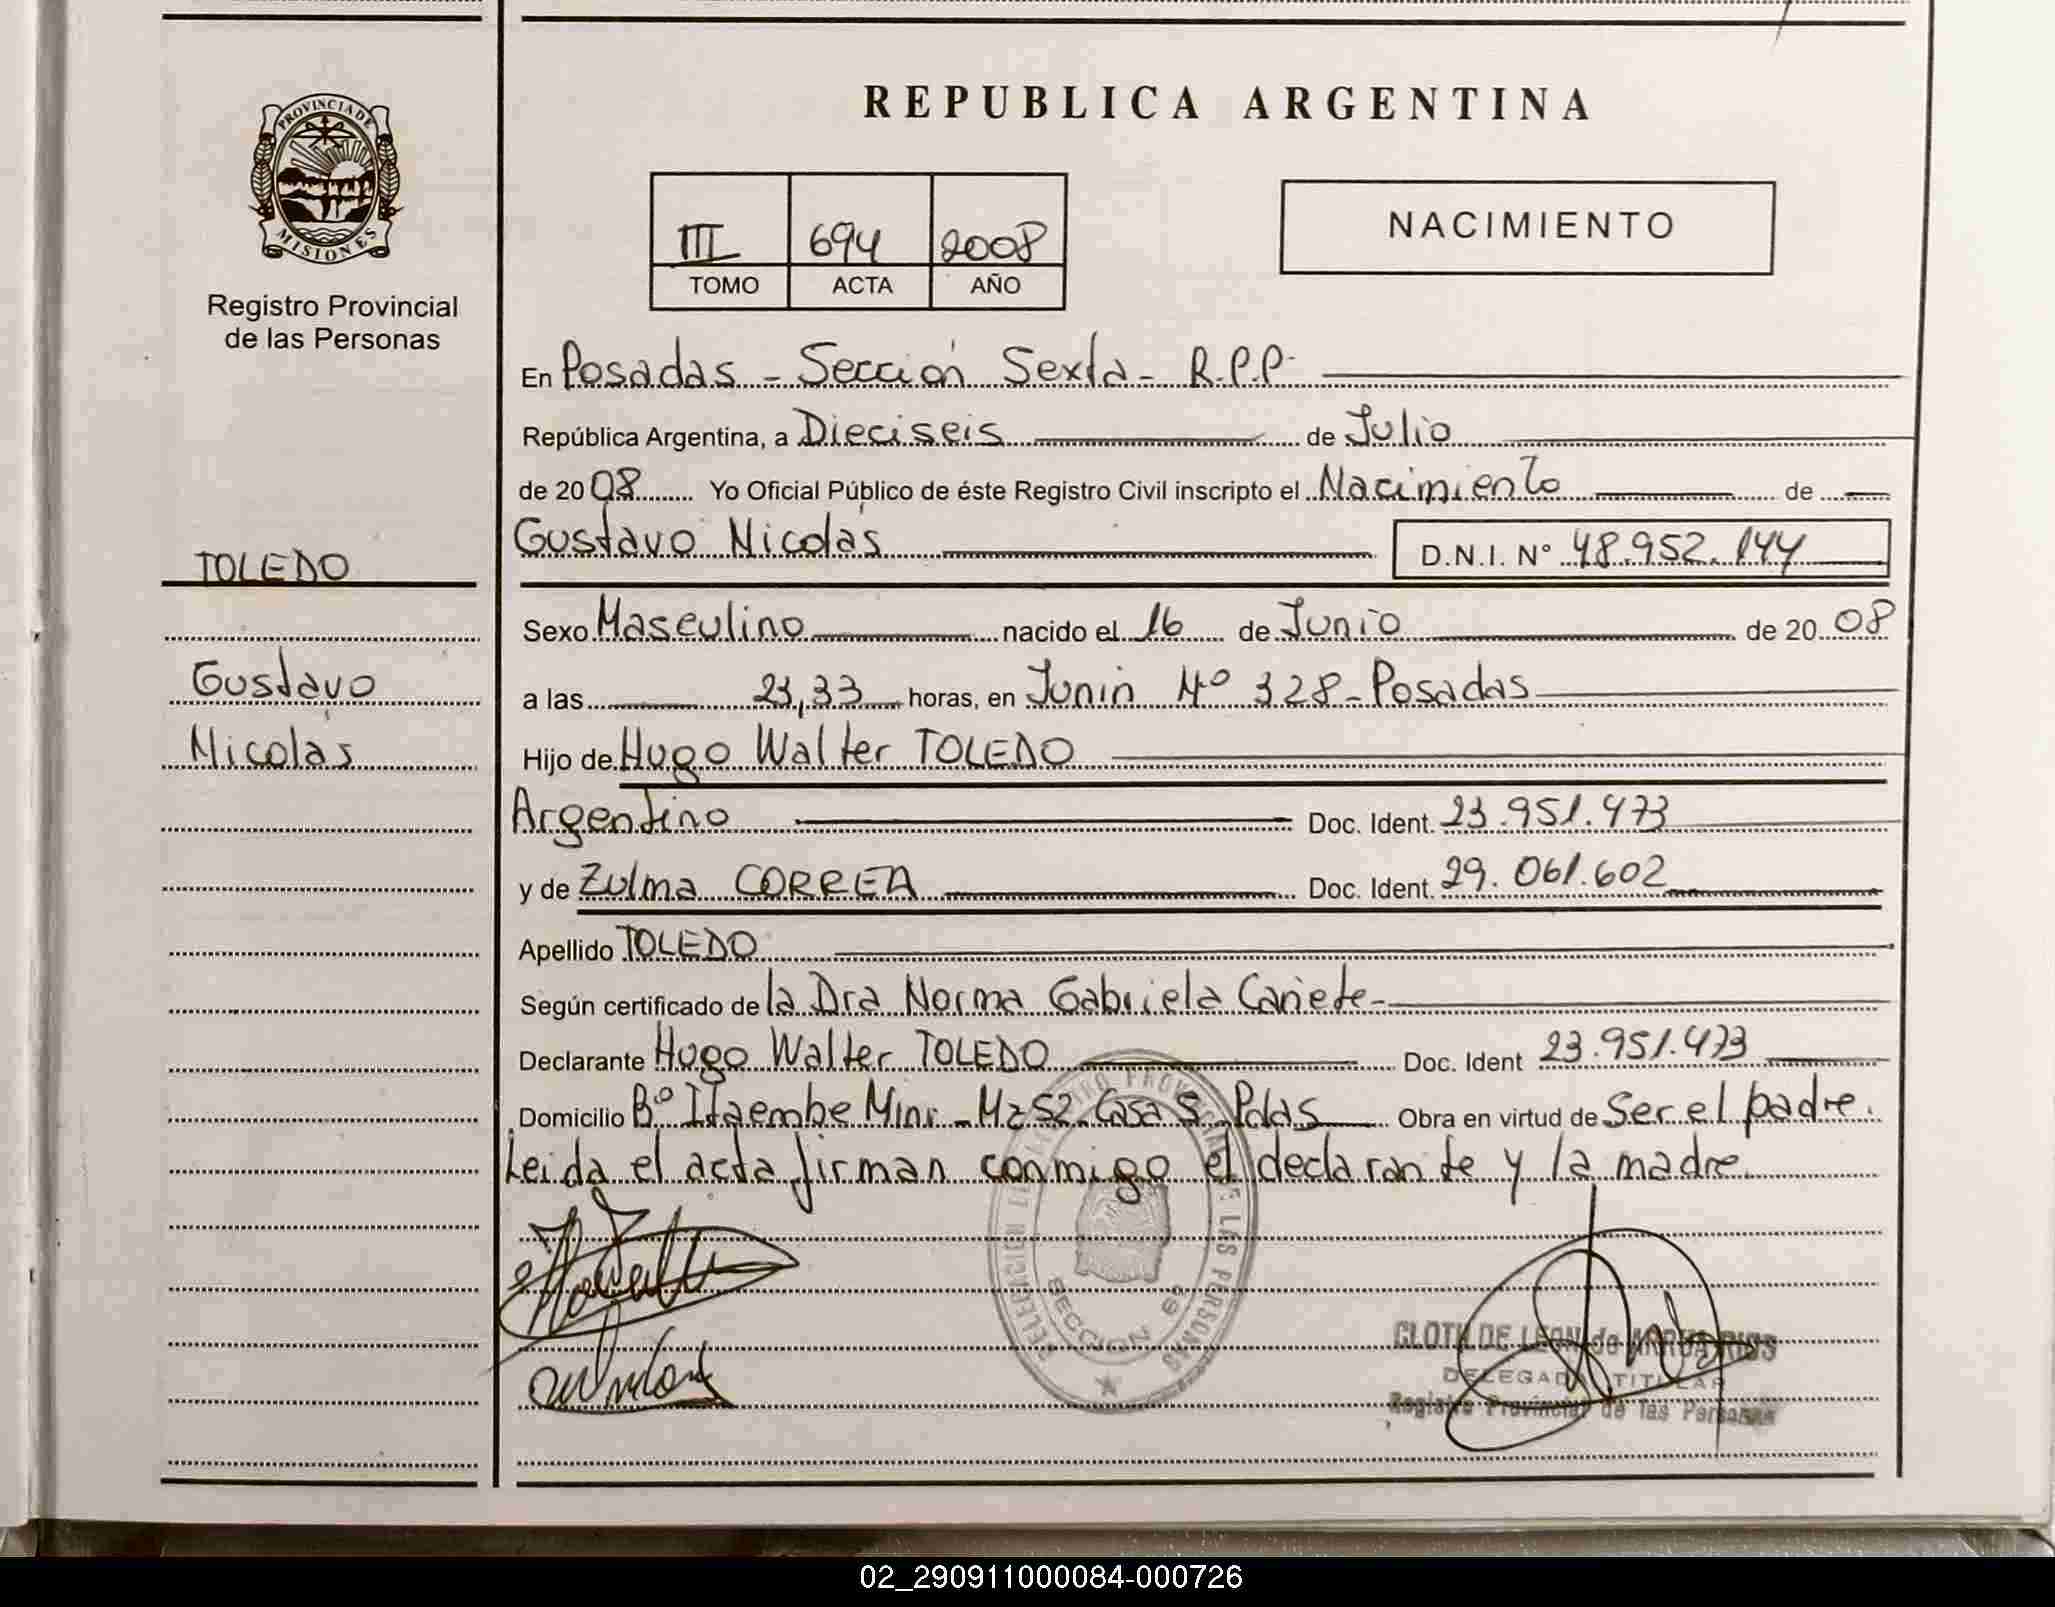 REPUBLICA ARGENTINA
PROVINCIA DE
MISIONES
Registro Provincial
de las Personas
III 694 2008
TOMO ACTA AÑO
NACIMIENTO
En Posadas - Sección Sexta - R.P.P.
República Argentina, a Dieciseis de Julio
de 2008 Yo Oficial Público de éste Registro Civil inscripto el Nacimiento de
Gustavo Nicolás D.N.I. N° 48.952.144
TOLEDO
Sexo Masculino nacido el 16 de Junio de 2008
Gustavo
a las 23,33 horas, en Junin Nº 328 - Posadas
Nicolás
Hijo de Hugo Walter TOLEDO
Argentino Doc. Ident. 23.951.473
y de Zulma CORREA Doc. Ident. 29.061.602
Apellido TOLEDO
Según certificado de la Dra Norma Gabriela Cañete-
Declarante Hugo Walter TOLEDO Doc. Ident 23.951.473
Domicilio Bº Itaembe Mini - Mz 52 Casa 5 Pdas Obra en virtud de Ser el padre.
Leida el acta firman conmigo el declarante y la madre.
DELEGACION REGISTRO PROVINCIAL DE LAS PERSONAS
SECCION 6ª
CLOTILDE LEON de ARRUA RIOS
DELEGADA TITULAR
Registro Provincial de las Personas
02_290911000084-000726